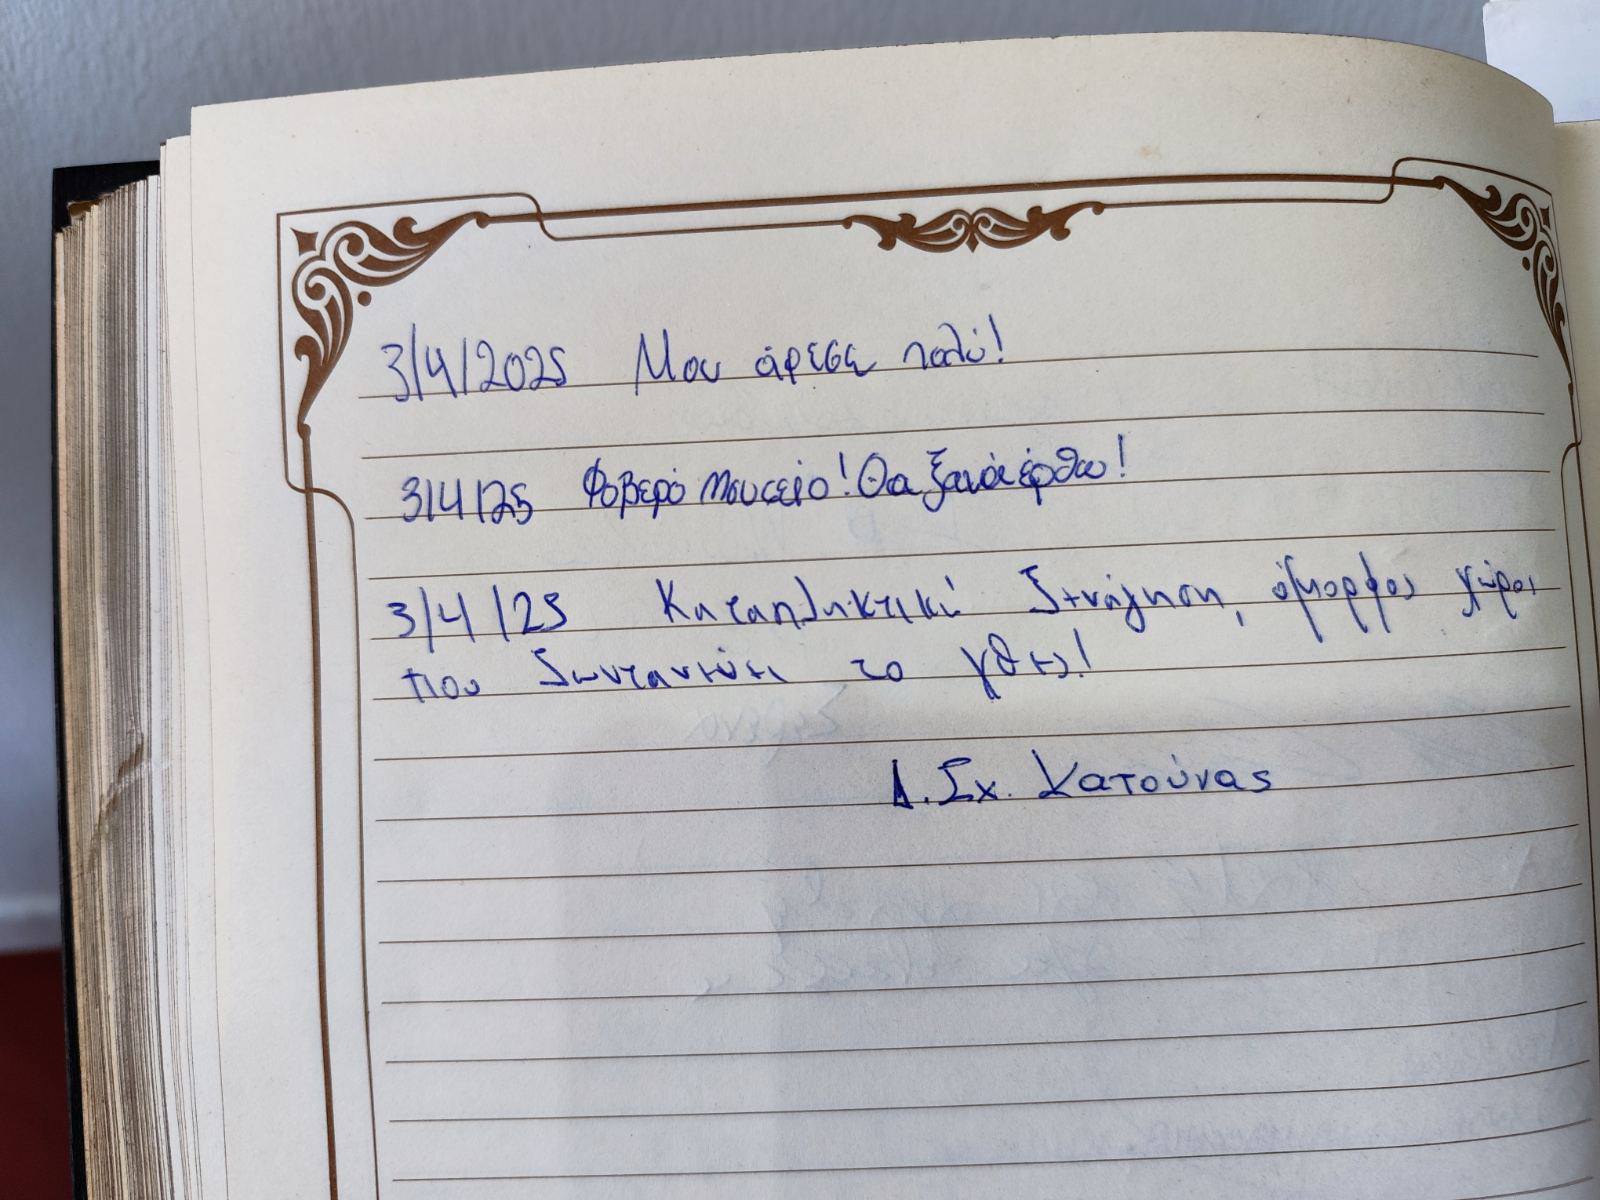 3/4/2025 Μου άρεσε πολύ!
3/4/25 Φοβερό μουσείο! Θα ξανά έρθω!
3/4/25 Καταπληκτική ξενάγηση, όμορφος χώρος
που ζωντανεύει το χθες!
Δ. Σχ. Κατούνας